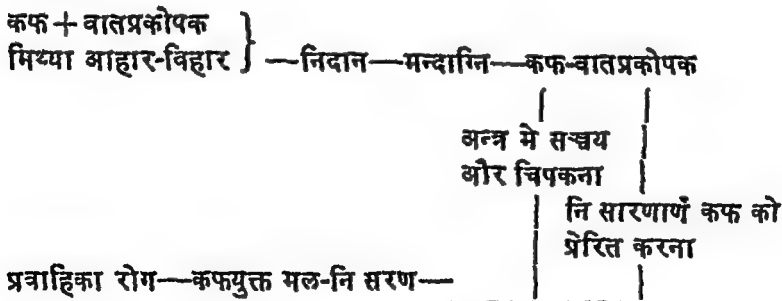 कफ + वातप्रकोपक
मिथ्या आहार-विहार } —निदान—मन्दाग्नि—कफ-वातप्रकोपक
अन्त्र मे सञ्चय
और चिपकना
नि सारणार्णं कफ को
प्रेरित करना
प्रवाहिका रोग—कफयुक्त मल-नि सरण—